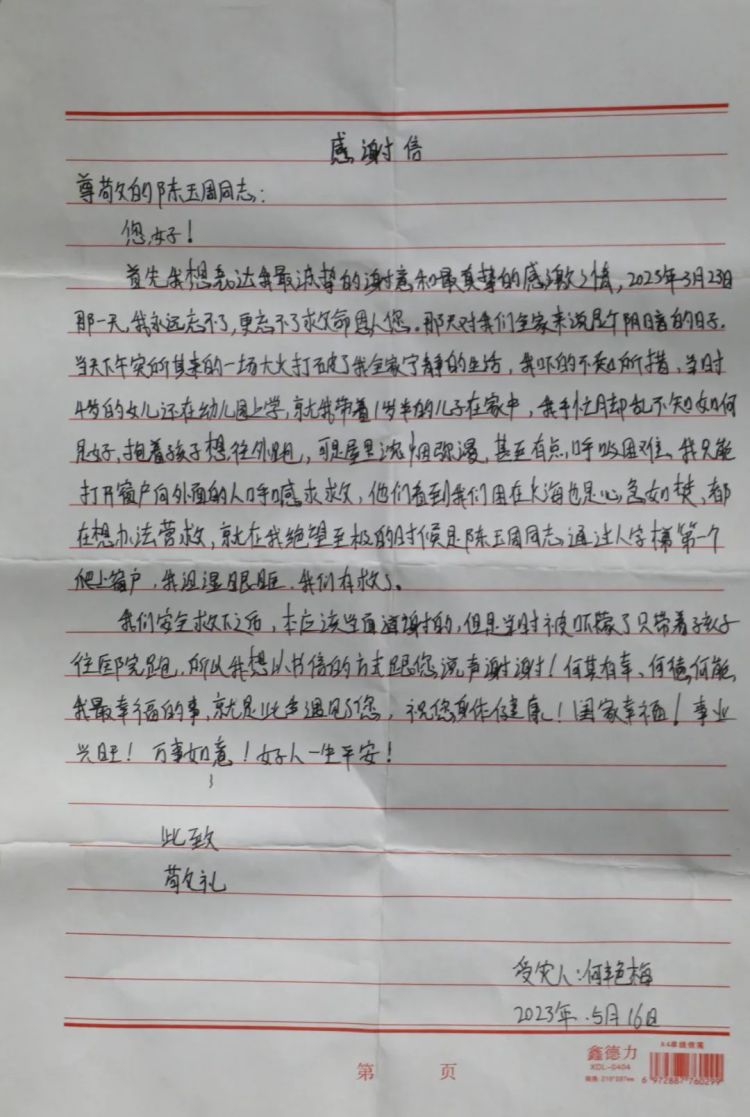 感谢信
尊敬的陈玉国同志：
您好！
首先我想表达我最诚挚的谢意和最真挚的感激之情，2023年3月23日
那一天，我永远忘不了，更忘不了救命恩人您。那天对我们全家来说是个阴暗的日子。
当天下午突所其来的一场大火打破了我全家宁静的生活，我吓的不知所措，当时
4岁的女儿还在幼儿园上学，就我带着1岁半的儿子在家中，我手忙脚乱不知如何
是好，抱着孩子想往外跑，可是屋里浓烟弥漫，甚至有点呼吸困难。我只能
打开窗户向外面的人呼喊求救，他们看到我们困在火海也是心急如焚，都
在想办法营救，就在我绝望至极的时候是陈玉国同志通过人字梯第一个
爬上窗户，我泪湿眼眶，我们有救了。
我们安全救下之后，本应该当面道谢的，但是当时被吓懵了只带着孩子
往医院跑，所以我想以书信的方式跟您说声谢谢！何其有幸、何德何能，
我最幸福的事，就是此生遇见了您，祝您身体健康！阖家幸福！事业
兴旺！万事如意！好人一生平安！
此致
敬礼
受灾人：何艳梅
2023年.5月16日
第 页
鑫德力
XDL-0404
6 972887 760299